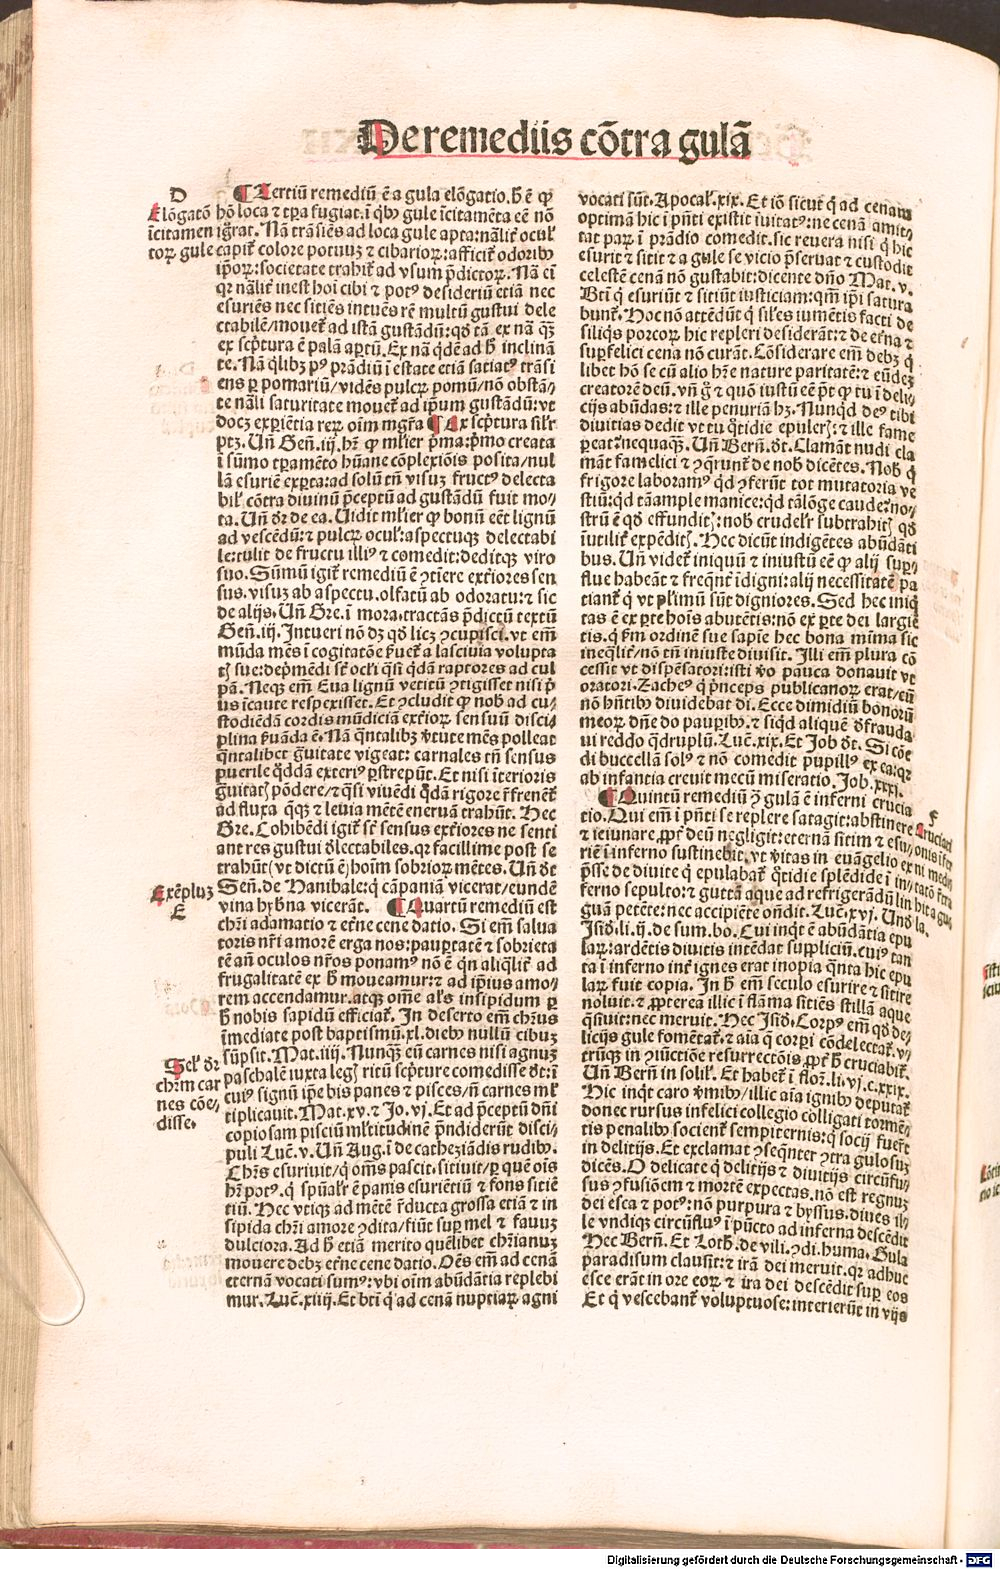 De remediis cōtra gulā
D
Elōgatō
īcitamen
torꝝ gule
¶ Tertiū remediū ē a gula elōgatio. h̄ ē ꝙ
hō loca ⁊ tꝑa fugiat. ī qͥbꝰ gule īcitamēta cē nō
igr̄at. Nā trāsiēs ad loca gule apta: nāliť ocul
capiť colore potuuꝫ ⁊ cibarioꝝ: afficiť odoribꝰ
ip̄oꝝ: societate trahiť ad vsum p̄dictoꝝ. Nā cū
qꝛ nāliť inest hoī cibi ⁊ potꝰ desideriū etiā nec
esuriēs nec sitiēs intuēs rē multū gustui dele
ctabilē/mouet ad istā gustādū: qḋ tā ex nā qꝫ
ex scp̄tura ē palā aꝑtū. Ex nā qͥdē ad h̄ inclina
te. Nā qͥlibꝫ pꝰ prādiū ī estate etiā satiatꝰ trāsi
ens ꝑ pomariū/vidēs pulcꝝ pomū/nō obstā/
te nāli saturitate mouet ad ip̄um gustādū: vt
docꝫ exꝑiētia reꝝ oīm mgr̄a ¶ Ex scp̄tura sil̄r
ptꝫ. Uñ Geñ. iij. hr̄ ꝙ ml̄ier p̄ma: p̄mo creata
ī sūmo tꝑamēto hūane cōplexiōis posita/nul
lā esuriē exꝑta: ad solū tñ visuꝫ fructꝰ delecta
bil̄ cōtra diuinū p̄ceptū ad gustādū fuit mo/
ta. Uñ dr̄ de ea. Uidit ml̄ier ꝙ bonū eēt lignū
ad vescēdū: ⁊ pulcꝝ ocul̄: aspectuqꝫ delectabi
le: tulit de fructu illiꝰ ⁊ comedit: deditqꝫ viro
suo. Sūmū igiť remediū ē ꝯtīere extͥores sen
sus. visuꝫ ab aspectu. olfatū ab odoratu: ⁊ sic
de alijs. Uñ Gre. ī mora. tractās p̄dictū textū
Geñ. iij. Intueri nō dꝫ qḋ licꝫ ꝯcupisci. vt em̄
mūda mēs ī cogitatōe ẜueť a lasciuia volupta
tꝭ sue: dep̄mēdi st̄ ocl̄i qͣsi qͥdā raptores ad cul
pā. Neqꝫ em̄ Eua lignū vetitū ꝯtigisset nisi p̄
us īcaute respexisset. Et ꝯcludit ꝙ nob̄ ad cu/
stodiēdā cordis mūdiciā extͥoꝝ sensuū disci/
plina ẜuāda ē. Nā qͣntalibꝫ v̄tute mēs polleat
qͣntalibet gͣuitate vigeat: carnales tñ sensus
puerile qͥddā exteriꝰ ꝑstrepūt. Et nisi īterioris
guitatꝭ pōdere/⁊ qͣsi viuēdi qͦdā rigore r̄frenēť
ad fluxa qͣqꝫ ⁊ leuia mētē eneruā trahūt. Hec
Gre. Cohibēdi igiť st̄ sensus extͥores ne senti
ant res gustui ďlectabiles. qꝛ facillime post se
trahūt (vt dictū ē) hoīm sobrioꝝ mētes. Uñ ďt
Señ. de Hanibale: qͥ cāpaniā vicerat/eundē
vina hyb̄na vicerāt. ¶ Quartū remediū est
chr̄i adamatio ⁊ etr̄ne cene datio. Si em̄ salua
toris nr̄i amorē erga nos: pauꝑtatē ⁊ sobrieta
tē añ oculos nr̄os ponamꝰ nō ē qͥn aliqͣliť ad
frugalitatē ex h̄ moueamur: ⁊ ad ip̄ius amo/
rem accendamur. atqꝫ om̄e al̄s insipidum ꝑ
h̄ nobis sapidū efficiať. In deserto em̄ chr̄us
īmediate post baptismū. xl. diebꝰ nullū cibuꝫ
sūpsit. Mat. iiij. Nunqꝫ eū carnes nisi agnuꝫ
paschalē iuxta legꝭ ritū scp̄ture comedisse ďt: ī
cuiꝰ signū ip̄e bis panes ⁊ pisces/ñ carnes ml̄
tiplicauit. Mat. xv. ⁊ Jo. vj. Et ad p̄ceptū dñi
copiosam pisciū ml̄titudinē p̄ndiderūt disci/
puli Luc̄. v. Uñ Aug. ī de catheziādis rudibꝰ.
Chr̄s esuriuit/qͥ om̄s pascit. sitiuit/ꝑ quē oīs
hr̄ potꝰ. qͥ spūalr̄ ē panis esuriētiū ⁊ fons sitiē
tiū. Hec vtiqꝫ ad mētē r̄ducta grossa etiā ⁊ in
sipida chr̄i amore ꝯdita/fiūt suꝑ mel ⁊ fauuꝫ
dulciora. Ad h̄ etiā merito quēlibet chr̄ianuꝫ
mouere debꝫ etr̄ne cene datio. Oēs em̄ ad cenā
eternā vocati sumꝰ: vbi oīm abūdātia replebi
mur. Luc̄. xiiij. Et bt̄i qͥ ad cenā nuptiaꝝ agni
Exēpluꝫ
E
Sel̄ dr̄
chr̄m car
nes cōe/
disse.
vocati sūt. Apocal̄. xix. Et iō sicut qͥ ad cenam
optimā hic ī pn̄ti existit īuitatꝰ: ne cenā amit/
tat parū ī prādio comedit. sic reuera nisi qͥ hic
esurit ⁊ sitit ⁊ a gule se vicio p̄seruat ⁊ custodit
celestē cenā nō gustabit: dicente dn̄o Mat. v.
Bt̄i qͥ esuriūt ⁊ sitiūt iusticiam: qm̄ ip̄i satura
bunť. Hoc nō attēdūt qͥ sil̄es iumētis facti de
siliqͥs porcoꝝ hic repleri desiderāt: ⁊ de etr̄na ⁊
suꝑfelici cena nō curāt. Cōsiderare em̄ debꝫ qͥ
libet hō se cū alio hr̄e nature paritatē: ⁊ eūdeꝫ
creatorē deū. vñ g̊ ⁊ quō iustū eē pt̄ ꝙ tu ī deli/
cijs abūdas: ⁊ ille penuriā hꝫ. Nunqͥd deꝰ tibi
diuitias dedit vt tu qͦtidie epulerꝭ: ⁊ ille fame
ꝑeat: nequaqꝫ. Uñ Berñ. ďt. Clamāt nudi cla
māt famelici ⁊ ꝯqͣrunť de nob̄ dicētes. Nob̄ qͥ
frigore laboramꝰ qͥd ꝯferūt tot mutatoria ve
stiū: qͥd tā ample manice: qͥd tā lōge caude: no/
strū ē qḋ effunditꝭ: nob̄ crudelr̄ subtrahiť qḋ
īutiliť expēdiť. Hec dicūt indigētes abūdāti
bus. Uñ videť iniquū ⁊ iniustū eē ꝙ alij suꝑ/
flue habeāt ⁊ freqn̄ť īdigni: alij necessitatē pa
tianť qͥ vt pl̄imū sūt digniores. Sed hec iniq̄
tas ē ex ꝑte hoīs abutētis: nō ex ꝑte dei largiē
tis. qͥ ẜm ordinē sue sapīe hec bona mūma sic
ineqͣliť/nō tñ iniuste diuisit. Illi em̄ plura cō
cessit vt dispēsatori: isti v̊o pauca donauit vt
oratori. Zacheꝰ qͥ p̄nceps publicanoꝝ erat/cū
nō hn̄tibꝰ diuidebat di. Ecce dimidiū bonoꝝ
meoꝝ dn̄e do pauꝑibꝰ ⁊ siqͥd aliquē ďfrauda
ui reddo qͣdruplū. Luc̄. xix. Et Job ďt. Si cōe
di buccellā solꝰ ⁊ nō comedit pupillꝰ ex ea: qꝛ
ab infantia creuit mecū miseratio. Job. xxxj.
¶ Quintū remediū ꝯ̄ gulā ē inferni crucia
tio. Qui em̄ ī pn̄ti se replere satagit: abstinere
⁊ ieiunare ꝓpť deū negligit: eternā sitim ⁊ esu/
riē ī inferno sustinebit. vt v̄itas in euāgelio ex
p̄sse de diuite qͥ epulabať qͦtidie splēdide ī in/
ferno sepulto: ⁊ guttā aque ad refrigerādū lin
guā petēte: nec accipiēte oñdit. Luc̄. xvj. Uñ
Jsid. li. ij. de sum. bo. Cui inqͥt ē abūdātia epu
laꝝ: ardētis diuitis intēdat suppliciū. cuiꝰ tan
ta ī inferno inť ignes erat inopia qͣnta hic epu
laꝝ fuit copia. In h̄ em̄ seculo esurire ⁊ sitire
noluit. ⁊ ꝓpterea illic ī flāma sitiēs stillā aque
qͣsiuit: nec meruit. Hec Jsid. Corpꝰ em̄ qḋ de/
licijs gule fomētať: ⁊ aīa qͥ corꝑi cōdelectať. v/
trūqꝫ in ꝯiūctiōe resurrectōis ꝓpť h̄ cruciabiť.
Uñ Berñ in solil̄. Et habeť ī flor̄. li. vj. c. xxix.
Hic inqͥt caro v̄mibꝰ/illic aīa ignibꝰ deputať
donec rursus infelici collegio colligati tormē/
tis penalibꝰ socienť sempiternis: qͥ socij fuer̄t
in delitijs. Et exclamat ꝯseqn̄ter ꝯtra gulosuꝫ
dicēs. O delicate qͥ delitijs ⁊ diuitijs circūflu/
sus ⁊ fusiōem ⁊ mortē expectas. nō est regnuꝫ
dei esca ⁊ potꝰ: nō purpura ⁊ byssus. diues il/
le vndiqꝫ circūflusꝰ ī pūcto ad inferna descēdit
Hec Berñ. Et Loth. de vili. ꝯdi. huma. Gula
paradisum clausit: ⁊ irā dei meruit. qꝛ adhuc
esce erāt in ore eoꝝ ⁊ ira dei descēdit suꝑ eos
Et qͥ vescebanť voluptuose: interierūt in vijs
F
Cruciati
Digitalisierung gefördert durch die Deutsche Forschungsgemeinschaft -
DFG